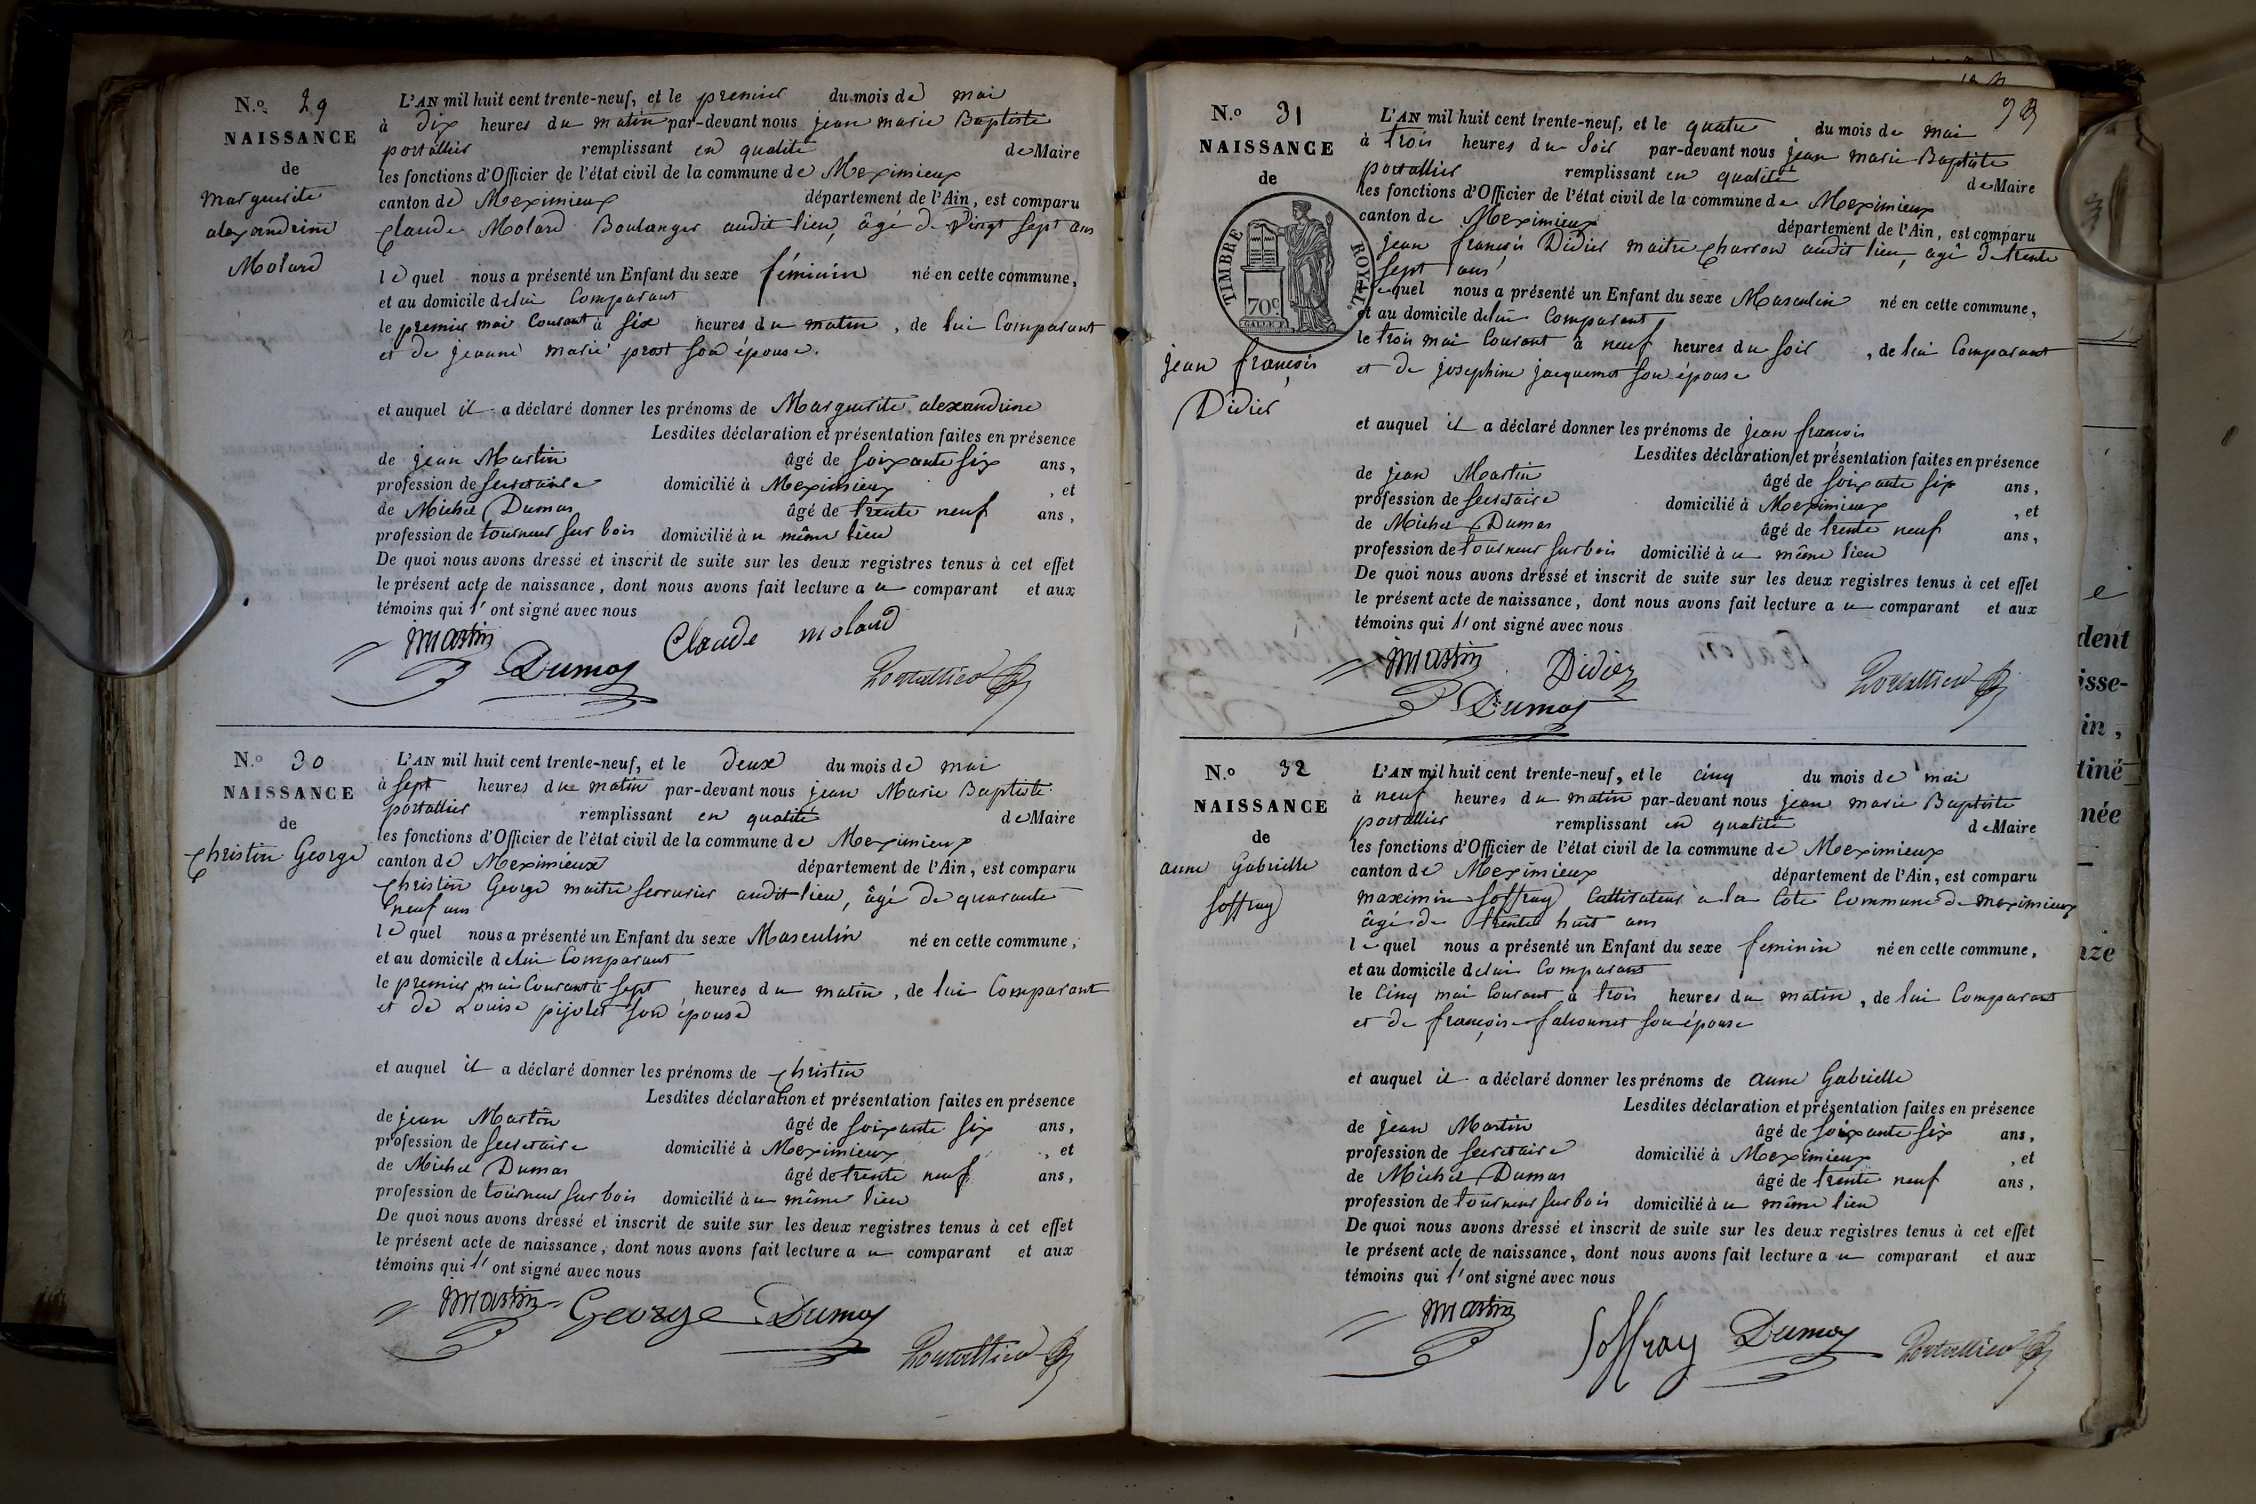 N.º 29
NAISSANCE
de
marguerite
alexandrine
Molard
L'AN mil huit cent trente-neuf, et le premier du mois de mai
à dix heures du matin par-devant nous jean marie Baptiste
portallier remplissant en qualité de Maire
les fonctions d'Officier de l'état civil de la commune de Meximieux
canton de Meximieux département de l'Ain, est comparu
Claude Molard Boulanger audit lieu, âgé de Vingt sept ans
lequel nous a présenté un Enfant du sexe féminin né en cette commune,
et au domicile de lui Comparant
le premier mai Courant à six heures du matin, de lui Comparant
et de jeanne marie prost son épouse.
et auquel il a déclaré donner les prénoms de Marguerite alexandrine
Lesdites déclaration et présentation faites en présence
de jean Martin âgé de soixante six ans,
profession de secretaire domicilié à Meximieux, et
de Michel Dumas âgé de trente neuf ans,
profession de tourneur sur bois domicilié à u même lieu
De quoi nous avons dressé et inscrit de suite sur les deux registres tenus à cet effet
le présent acte de naissance, dont nous avons fait lecture a u comparant et aux
témoins qui l'ont signé avec nous
Martin Claude molard
Dumas Portallier
N.º 30
NAISSANCE
de
Christin George
L'AN mil huit cent trente-neuf, et le deux du mois de mai
à sept heures du matin par-devant nous jean Marie Baptiste
portallier remplissant en qualité de Maire
les fonctions d'Officier de l'état civil de la commune de Meximieux
canton de Meximieux département de l'Ain, est comparu
Christin George maitre serrurier audit lieu, âgé de quarante
neuf ans
lequel nous a présenté un Enfant du sexe Masculin né en cette commune,
et au domicile de lui Comparant
le premier mai Courant à sept heures du matin, de lui Comparant
et de Louise pijolet son épouse
et auquel il a déclaré donner les prénoms de Christin
Lesdites déclaration et présentation faites en présence
de jean Martin âgé de soixante six ans,
profession de secretaire domicilié à Meximieux, et
de Michel Dumas âgé de trente neuf ans,
profession de tourneur sur bois domicilié à u même lieu
De quoi nous avons dressé et inscrit de suite sur les deux registres tenus à cet effet
le présent acte de naissance, dont nous avons fait lecture a u comparant et aux
témoins qui l'ont signé avec nous
Martin George Dumas
Portallier
N.º 31
NAISSANCE
de
TIMBRE ROYAL.
70c.
jean françois
Didier
L'AN mil huit cent trente-neuf, et le quatre du mois de mai
à trois heures du soir par-devant nous jean marie Baptiste
portallier remplissant en qualité de Maire
les fonctions d'Officier de l'état civil de la commune de Meximieux
canton de Meximieux département de l'Ain, est comparu
jean françois Didier maitre Charron audit lieu, âgé de trente
sept ans
lequel nous a présenté un Enfant du sexe Masculin né en cette commune,
et au domicile de lui Comparant
le trois mai Courant à neuf heures du soir, de lui Comparant
et de josephine jacquemet son épouse
et auquel il a déclaré donner les prénoms de jean françois
Lesdites déclaration et présentation faites en présence
de jean Martin âgé de soixante six ans,
profession de secretaire domicilié à Meximieux, et
de Michel Dumas âgé de trente neuf ans,
profession de tourneur sur bois domicilié à u même lieu
De quoi nous avons dressé et inscrit de suite sur les deux registres tenus à cet effet
le présent acte de naissance, dont nous avons fait lecture a u comparant et aux
témoins qui l'ont signé avec nous
Martin Didier Portallier
Dumas
N.º 32
NAISSANCE
de
anne Gabrielle
Soffray
L'AN mil huit cent trente-neuf, et le cinq du mois de mai
à neuf heures du matin par-devant nous jean marie Baptiste
portallier remplissant en qualité de Maire
les fonctions d'Officier de l'état civil de la commune de Meximieux
canton de Meximieux département de l'Ain, est comparu
maximin Soffray Cultivateur à la Cote Commune de meximieux
âgé de trente huit ans
lequel nous a présenté un Enfant du sexe feminin né en cette commune,
et au domicile de lui Comparant
le Cinq mai Courant à trois heures du matin, de lui Comparant
et de françoise son épouse
et auquel il a déclaré donner les prénoms de anne Gabrielle
Lesdites déclaration et présentation faites en présence
de jean Martin âgé de soixante six ans,
profession de secretaire domicilié à Meximieux, et
de Michel Dumas âgé de trente neuf ans,
profession de tourneur sur bois domicilié à u même lieu
De quoi nous avons dressé et inscrit de suite sur les deux registres tenus à cet effet
le présent acte de naissance, dont nous avons fait lecture a u comparant et aux
témoins qui l'ont signé avec nous
Martin Soffray Dumas Portallier
dent
isse-
in,
tiné
née